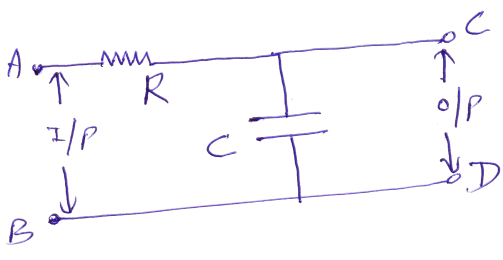 A
R
C
I/P
C
O/P
B
D